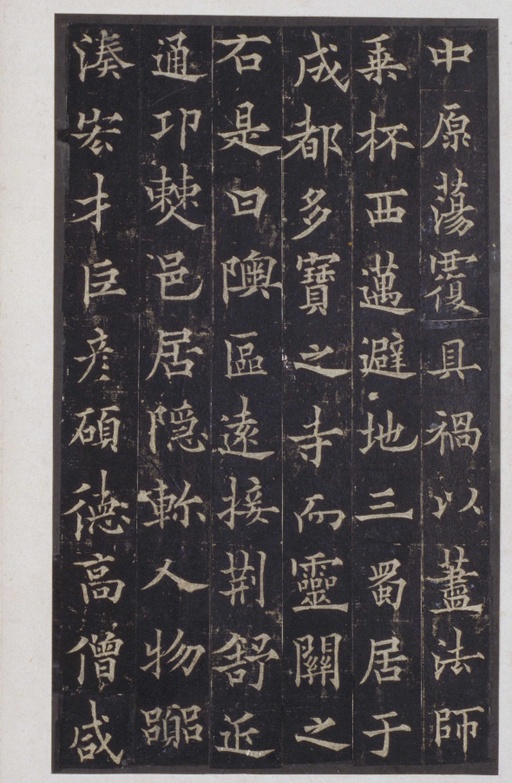 中原蕩覆具禍以藎法師
乘杯西邁避地三蜀居于
成都多寶之寺而靈關之
右是曰隩區遠接荊舒近
通邛僰邑居隱軫人物囂
湊宏才巨彥碩德高僧咸